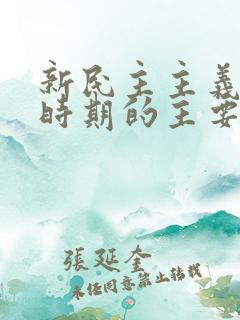 新民主主義
時期的主要
張延奎
未經同意禁止轉載